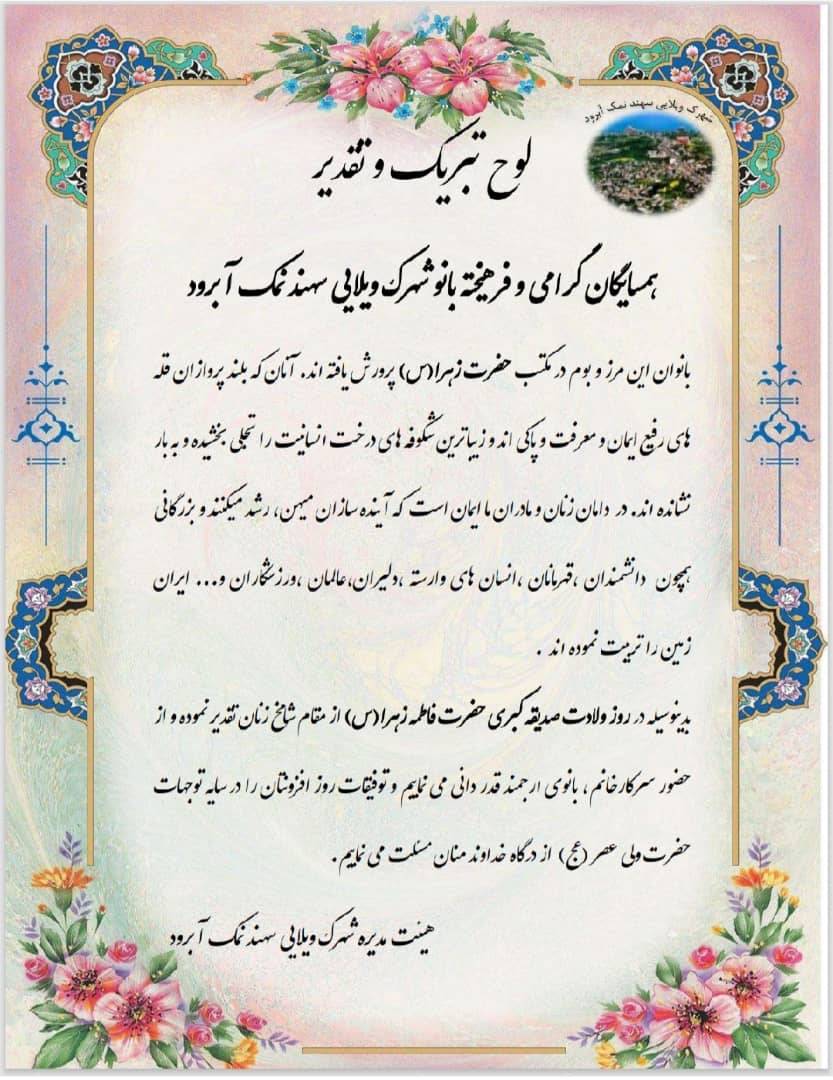 شهرک ویلایی سهند نمک آبرود
لوح تبریک و تقدیر
همسایگان گرامی و فرهیخته بانو شهرک ویلایی سهند نمک آبرود
بانوان این مرز و بوم در مکتب حضرت زهرا(س) پرورش یافته اند. آنان که بلند پروازان قله
های رفیع ایمان و معرفت و پاکی اند و زیباترین شکوفه های درخت انسانیت را تجلی بخشیده و به بار
نشانده اند. در دامان زنان و مادران با ایمان است که آینده سازان میهن، رشد میکنند و بزرگانی
همچون دانشمندان ،قهرمانان ،انسان های وارسته ،دلیران،عالمان ،ورزشکاران و... ایران
زمین را تربیت نموده اند .
بدینوسیله در روز ولادت صدیقه کبری حضرت فاطمه زهرا(س) از مقام شامخ زنان تقدیر نموده و از
حضور سرکارخانم ، بانوی ارجمند قدر دانی می نماییم و توفیقات روز افزونتان را در سایه توجهات
حضرت ولی عصر (عج) از درگاه خداوند منان مسئلت می نماییم.
هیئت مدیره شهرک ویلایی سهند نمک آبرود